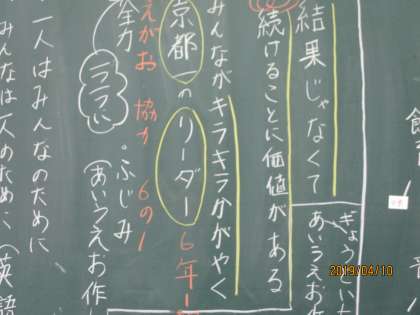 結果じゃなくて
続けることに価値がある
みんながキラキラかがやく
京都のリーダー 6年1
えがお 協力 6の1
全力 。ふじみ
(あいうえお作
一人はみんなのために
みんなは一人のために (英語
あいうえお作
2019/04/10